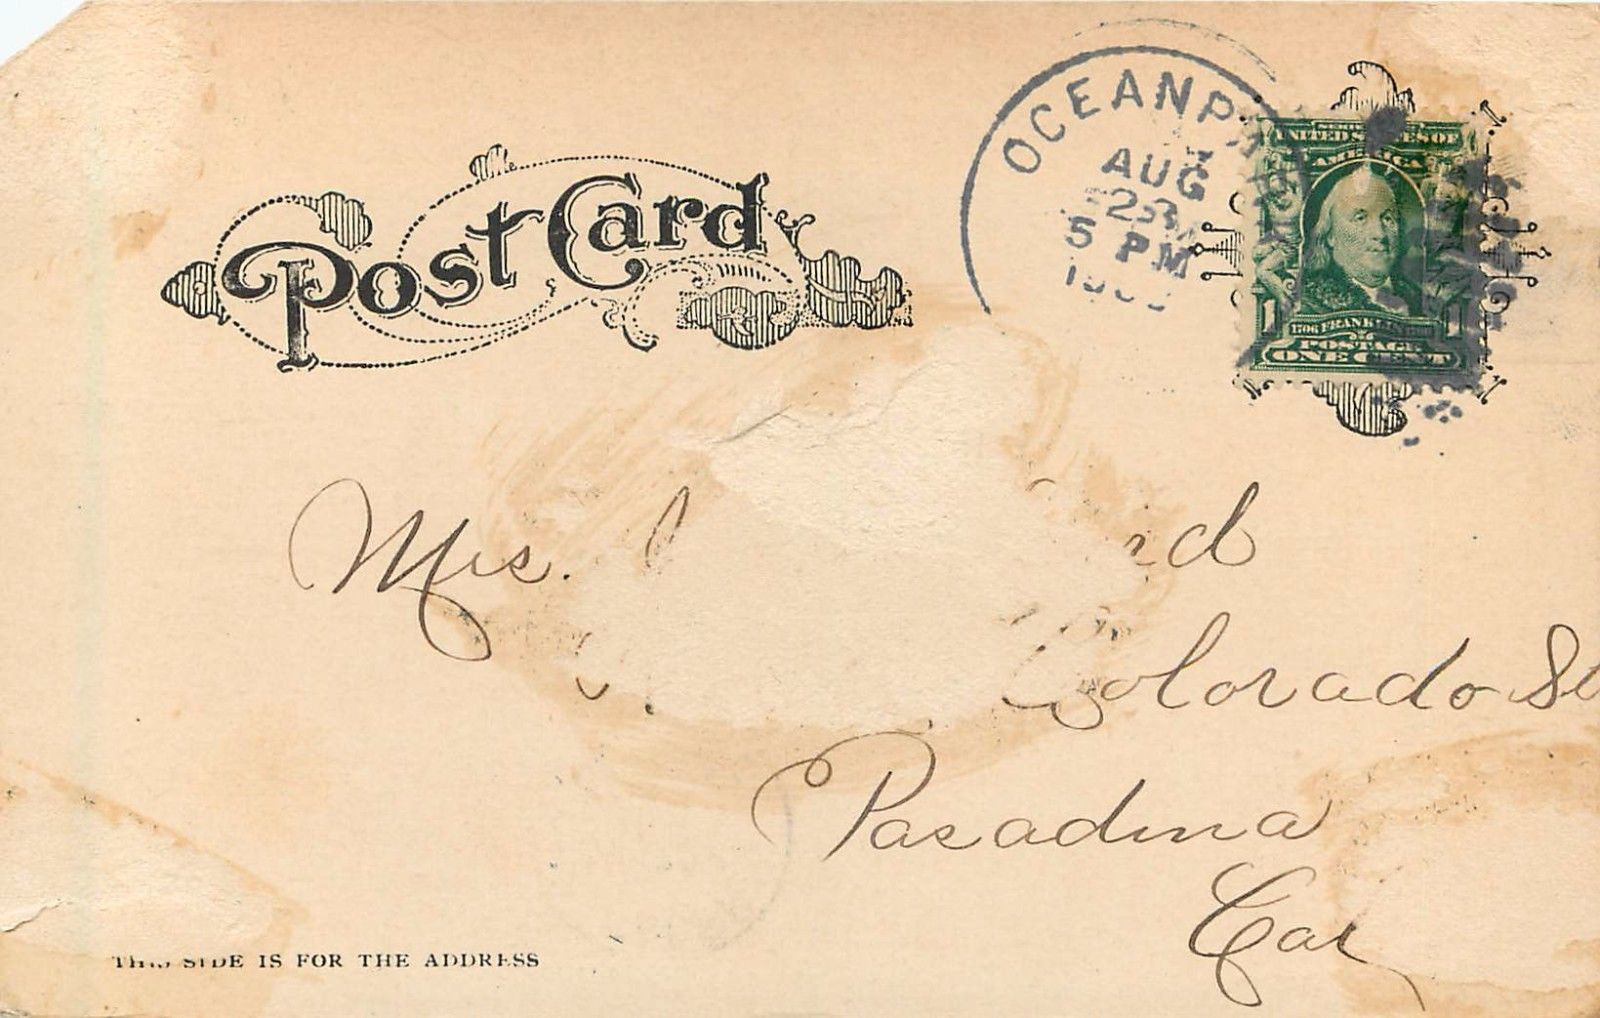 Post Card
OCEANP
AUG
23
5 PM
SERIES
UNITED STATES OF
AMERICA
1 1
1706 FRANKLIN
POSTAGE
ONE CENT
Mrs.
Colorado St
Pasadena
Cal
THIS SIDE IS FOR THE ADDRESS